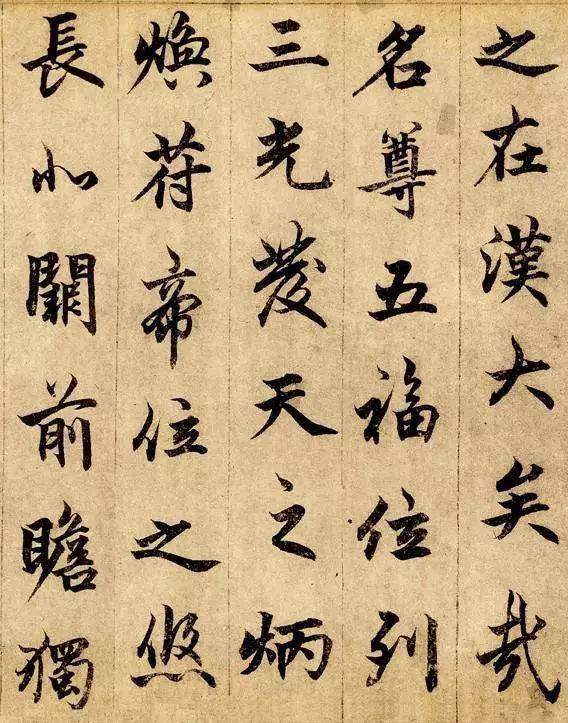 之在漢大矣哉
名尊五福位列
三光發天之炳
煥荷帝位之悠
長北闕前瞻獨